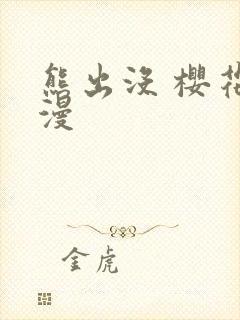 熊出没 樱花
漫
金虎